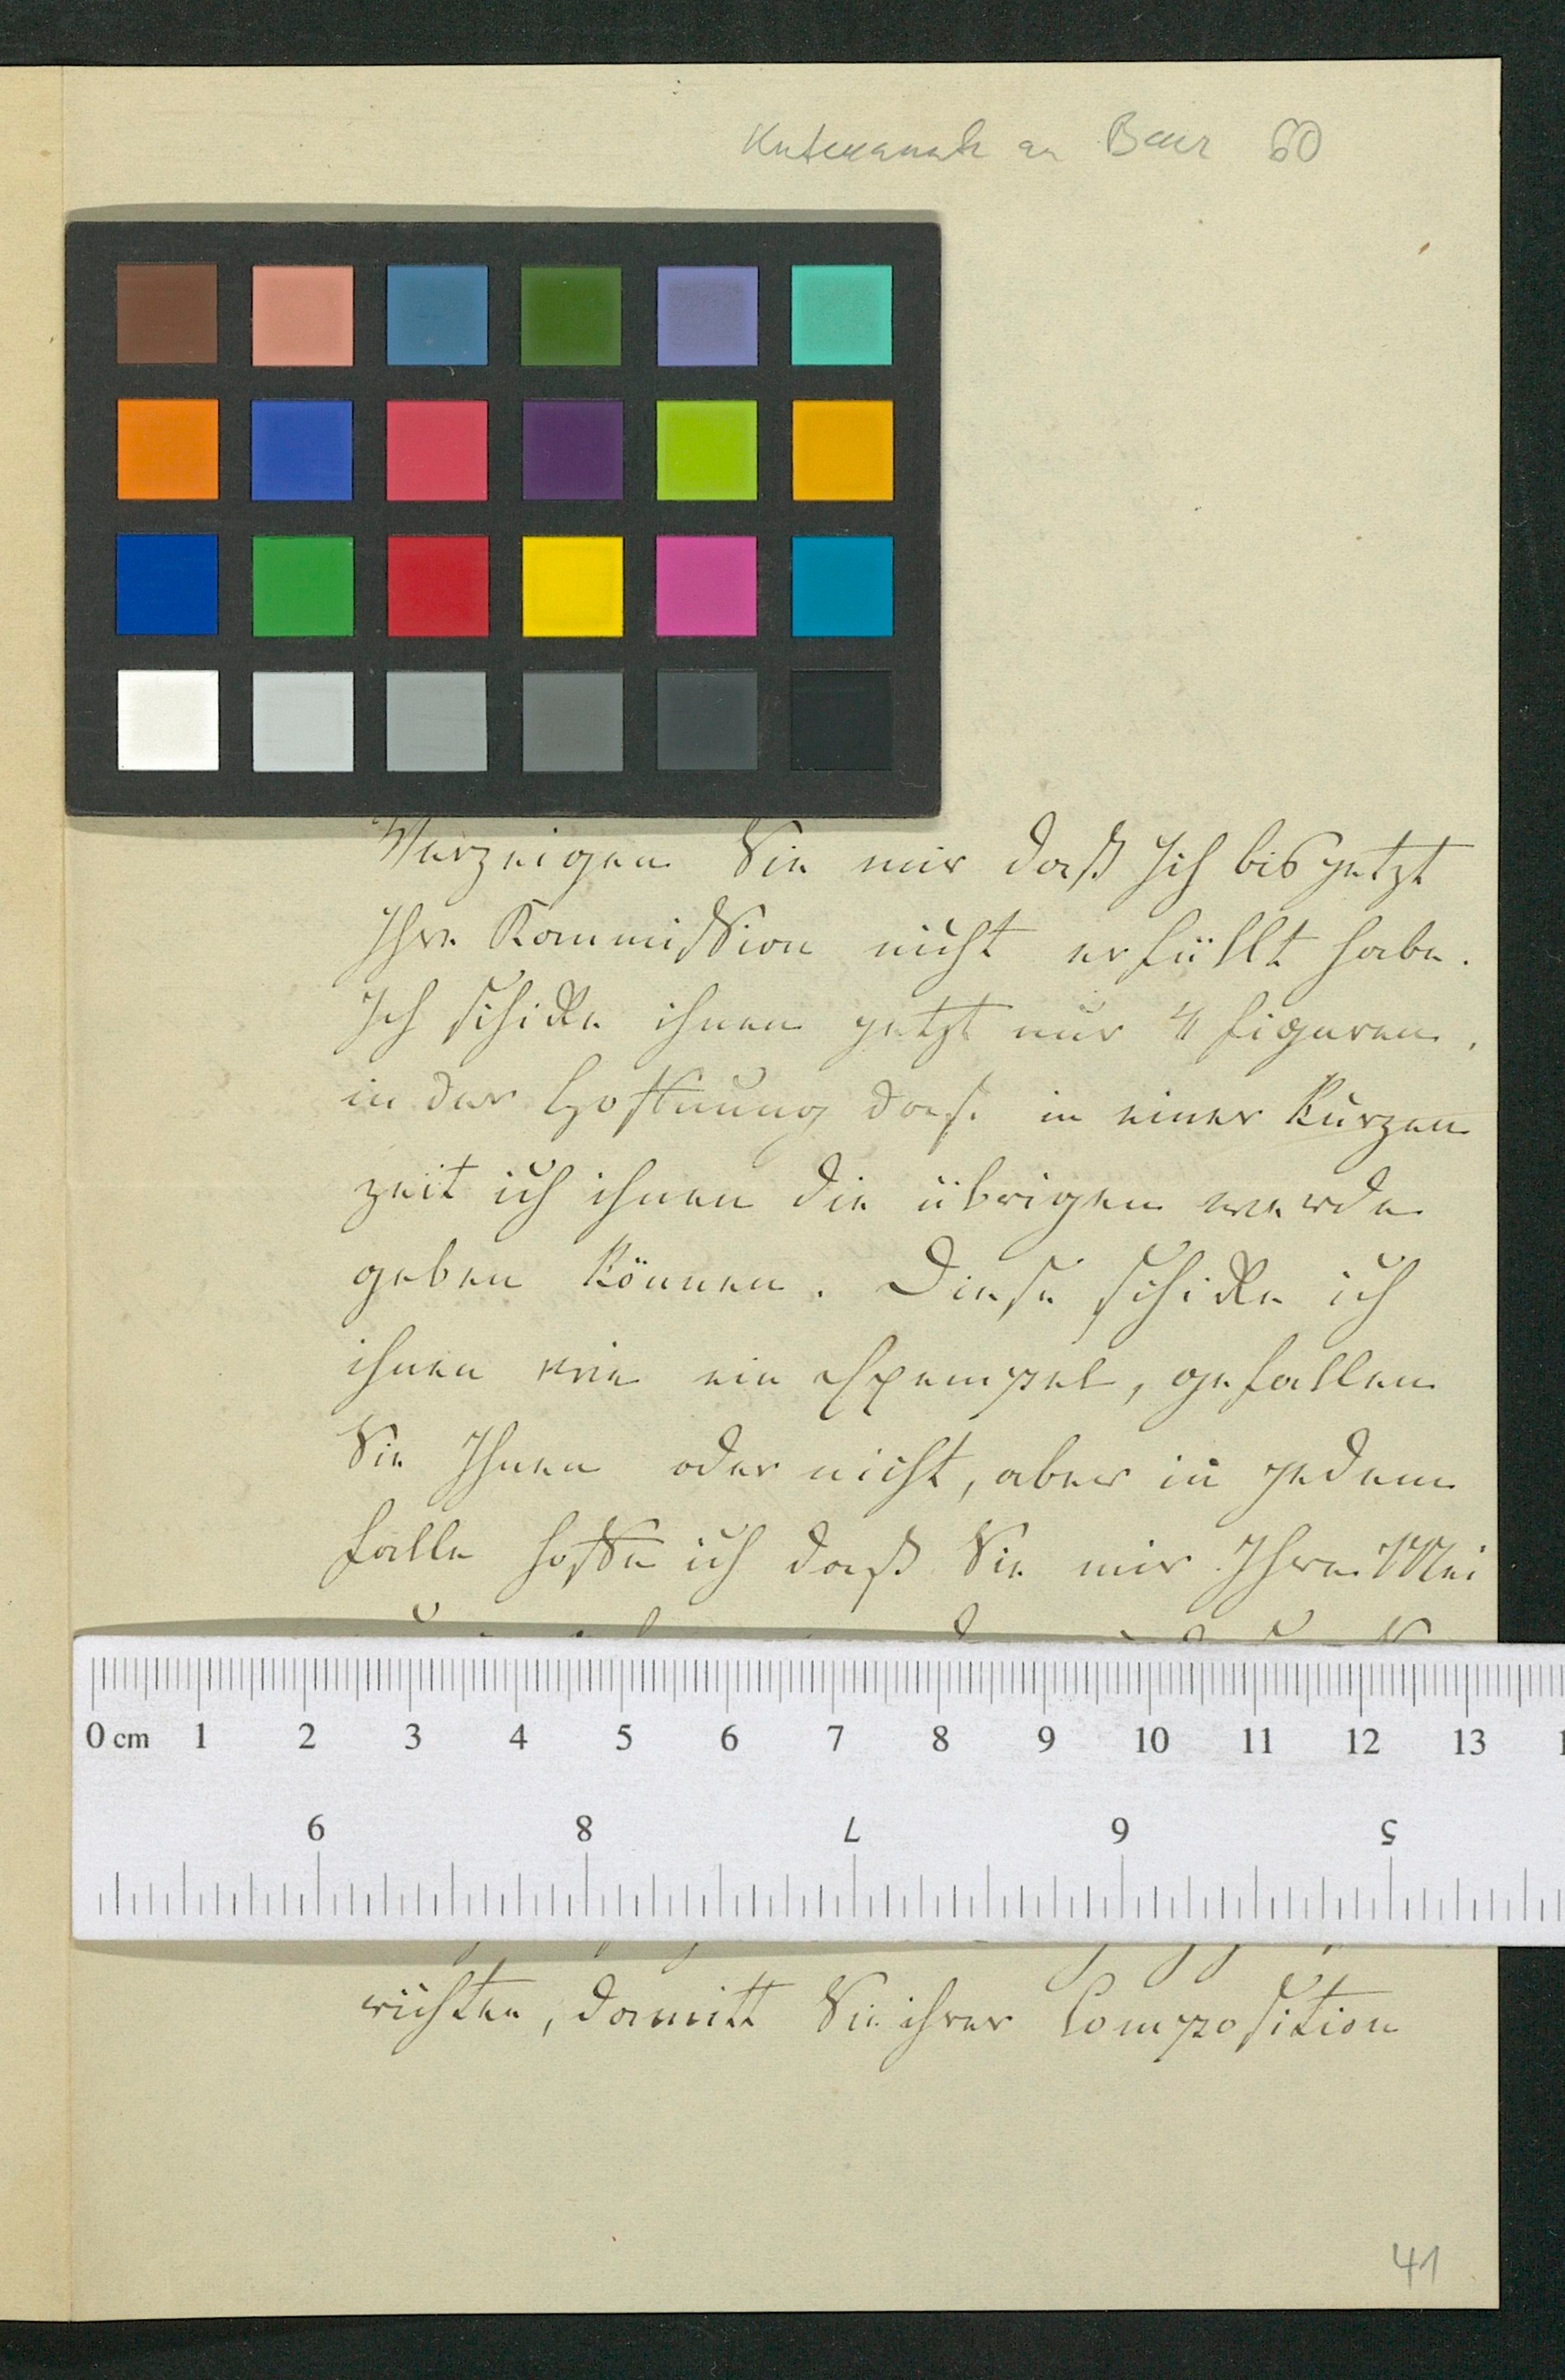 an Baer 60
Verzeigen Sie mir daß Ich bis jetzt
Ihre Kommission nicht erfüllt habe.
Ich schikke ihnen jetzt nur 4 figuren,
in der Hoffnung das in einer Kurzen
zeit ich ihnen die übrigen werde
geben können. Diese schikke ich
ihnen wie ein Exempel, gefallen
Sie Ihnen oder nicht, aber in jedem
falle hoffe ich daß Sie mir Ihre Mei
0 cm 1 2 3 4 5 6 7 8 9 10 11 12 13
9 8 7 6 5
richten, damitt Sie ihrer Composition
41